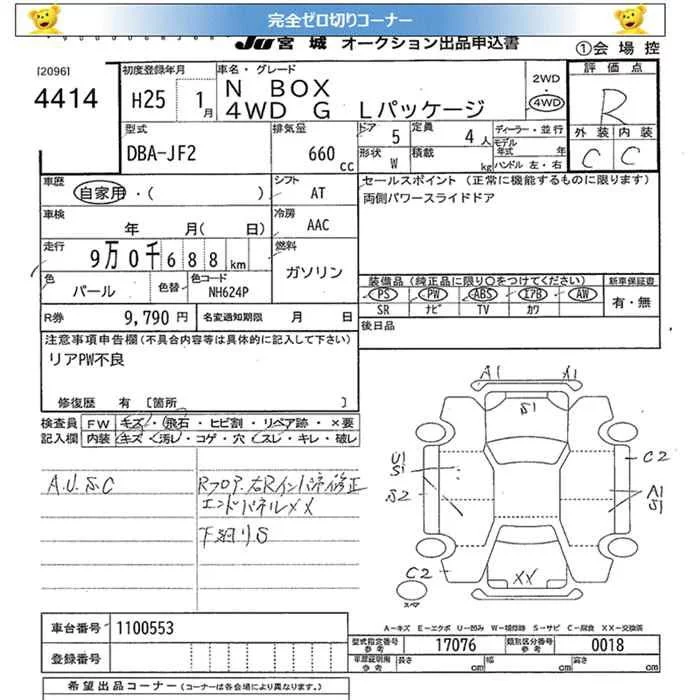 完全ゼロ切りコーナー
JU 宮城 オークション出品申込書
①会場控
[2096]
4414
初度登録年月
H25 1月
車名・グレード
N BOX
4WD G Lパッケージ
2WD
4WD
評価点
R
外装 内装
C C
型式
DBA-JF2
排気量
660 cc
ドア 5
定員 4人
形状 W
積載 kg
ディーラー・並行
モデル年式 年
ハンドル 左・右
車歴
自家用・( )
シフト
AT
セールスポイント (正常に機能するものに限ります)
両側パワースライドドア
車検
年 月( 日)
冷房
AAC
走行
9万0千688km
燃料
ガソリン
色
パール
色替
色コード
NH624P
装備品(純正品に限り○をつけてください)
新車保証書
PS PW ABS エアB AW
SR ナビ TV カワ
有・無
R券 9,790 円
名変通知期限 月 日
後日品
注意事項申告欄(不具合内容等は具体的に記入して下さい)
リアPW不良
修復歴 有 [箇所
検査員 FW キズ・飛石・ヒビ割・リペア跡・×要
記入欄 内装 キズ・汚レ・コゲ・穴・スレ・キレ・破レ
A.U.S.C
エンドパネルXX
下廻りS
A1 X1
S1
U1
S1
S2
C2
A1
S1
C2
XX
スペア
A-キズ E-エクボ U-凹み W-補修跡 S-サビ C-腐食 XX-交換済
車台番号 1100553
登録番号
型式指定番号
参考
17076
類別区分番号
参考
0018
車庫証明用
参考
長さ cm
幅 cm
高さ cm
希望出品コーナー (コーナーは各会場により異なります。)